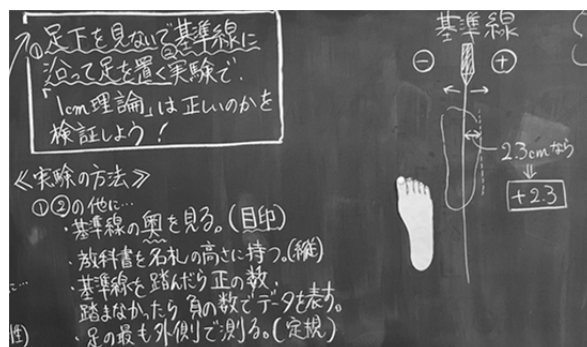 ①足下を見ないで②基準線に
沿って足を置く実験で、
「1cm理論」は正しいのかを
検証しよう!
≪実験の方法≫
①②の他に…
・基準線の奥を見る。(目印)
・教科書を名札の高さに持つ。(縦)
・基準線を踏んだら正の数、
踏まなかったら負の数でデータを表す。
・足の最も外側で測る。(定規)
に…
性)
基準線
− +
2.3cmなら
+2.3